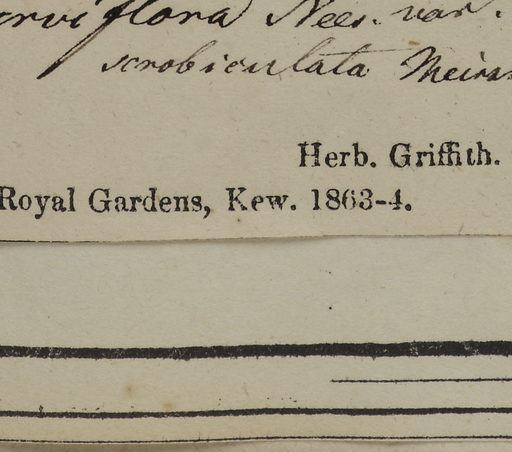 arviflora Nees. var.
scrobiculata Meissn
Herb. Griffith.
Royal Gardens, Kew. 1863-4.